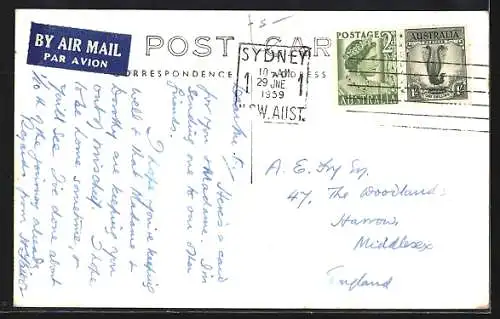 75-
BY AIR MAIL
PAR AVION
POST CARD
CORRESPONDENCE
ADDRESS
SYDNEY
29 JNE
1959
N.S.W. AUST.
POSTAGE
2D
AUSTRALIA
AUSTRALIA
1/-
Here's a card
for you & Madame. I'm
sending one to our other
friends.
I hope you're keeping
well & that Madame &
Dorothy are keeping you
out of mischief. I hope
to be home sometime, &
you'll see I've done about
of the journey already.
Regards from
A. E. Fry Esq.
47, The Woodlands
Harrow,
Middlesex
England